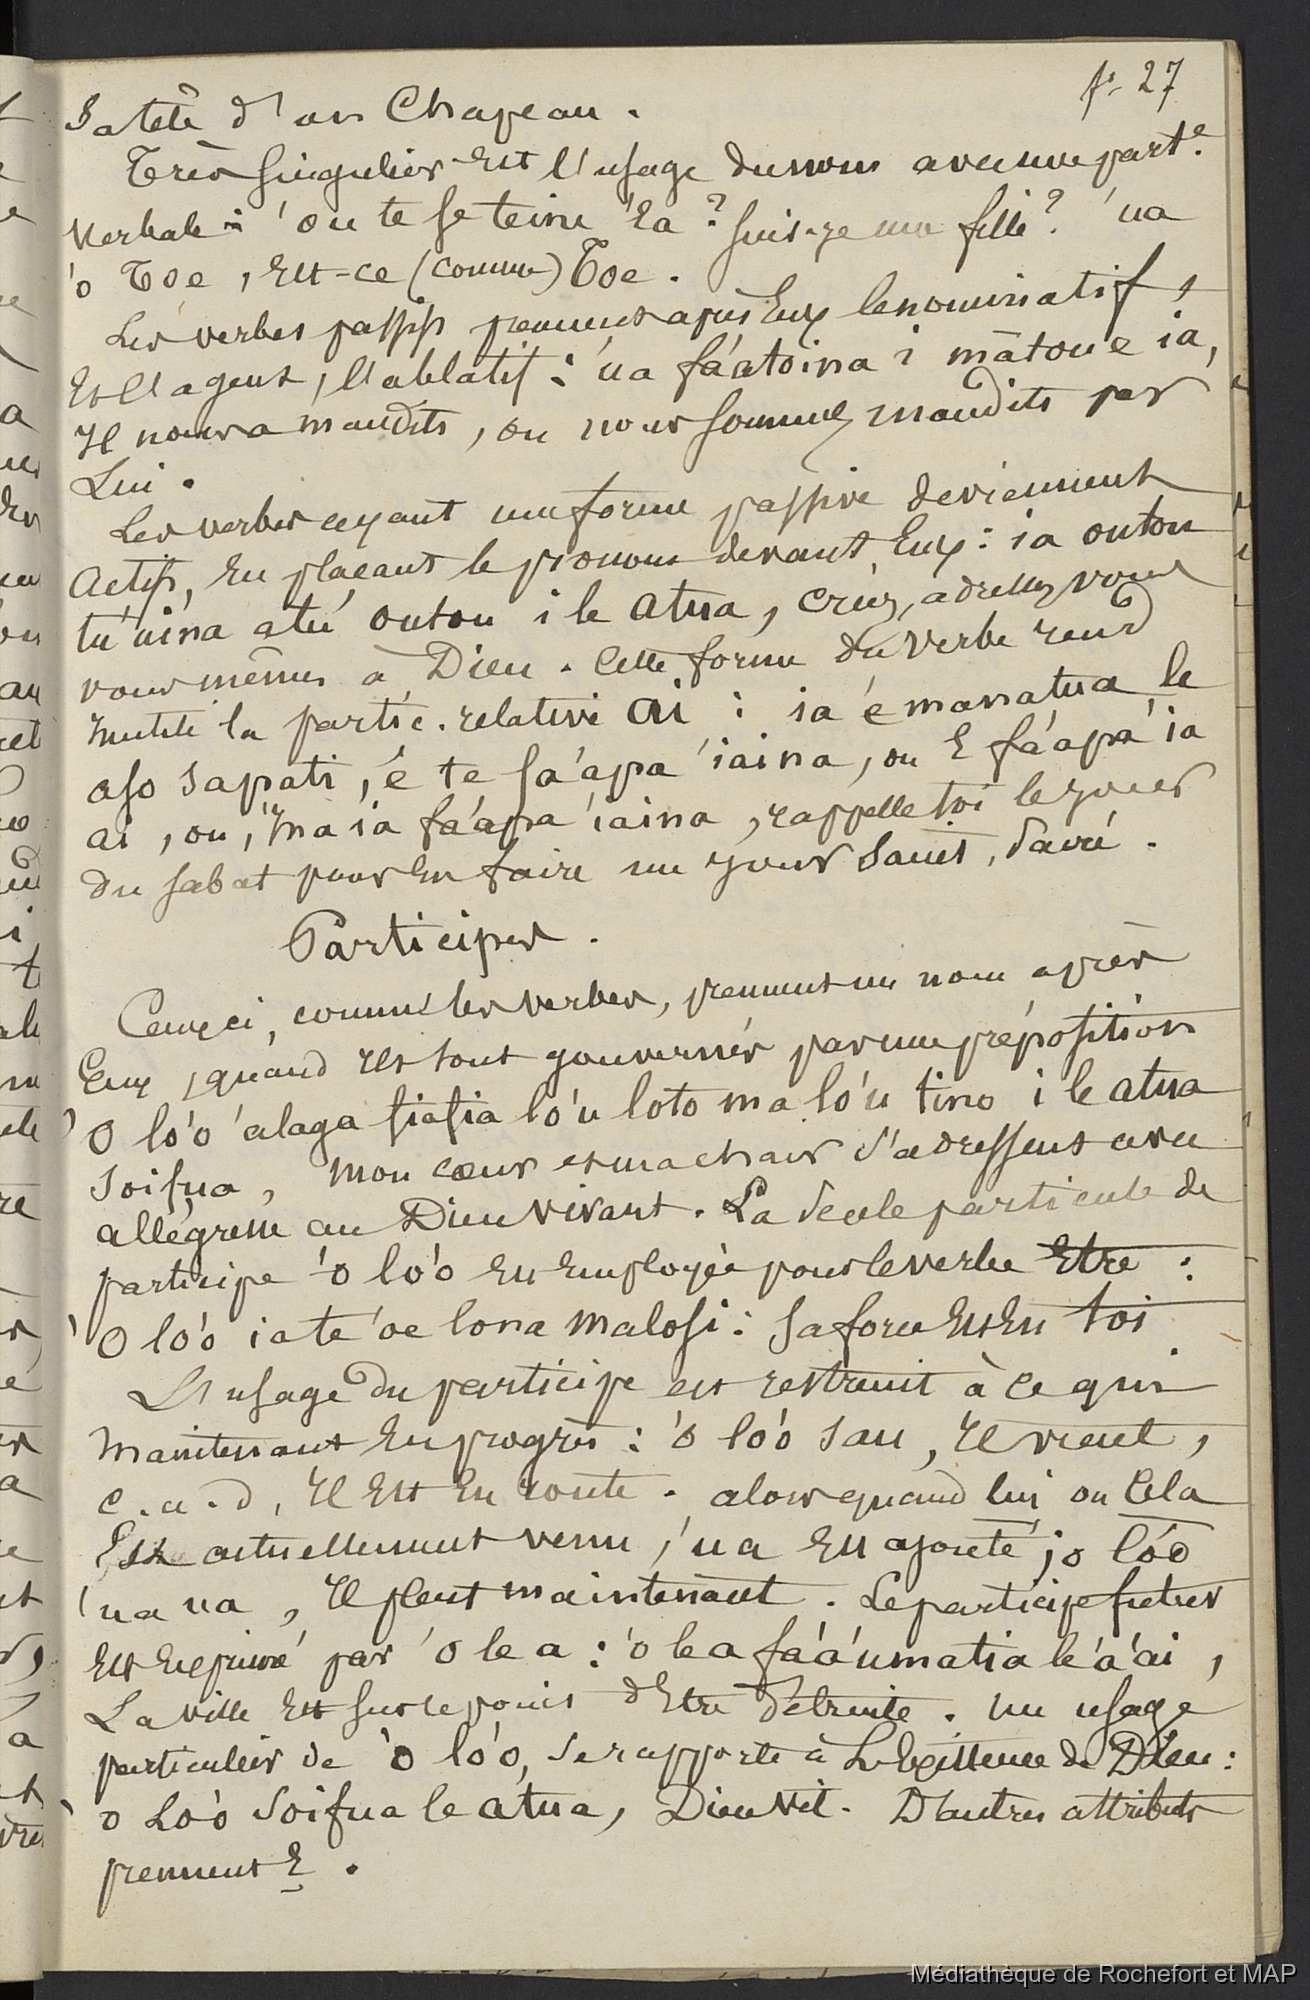 fo. 27
Sa tête d'un Chapeau.
Très singulier Est l'usage du nom avec une parte.
Verbale : 'ou te se teine 'Ea ? Suis-je une fille ? 'ua
'o Toe, Est-ce (comme) Toe.
Les verbes passifs prennent après Eux le nominatif,
Et l'agent, l'ablatif : 'ua fá'atoina i mātou e ia,
Il nous a maudits, ou nous sommes maudits par
Lui.
Les verbes ayant une forme passive deviennent
Actifs, En plaçant le pronom devant Eux : ia outou
tú'uina atú outou i le Atua, criez, adressez vous
vous mêmes à Dieu. Cette forme du Verbe rend
Inutile la partie. relative ai : ia é manatua le
aso sapati, é te fa'apa 'iaina, ou E fá'apa'ia
ai, ou, 'ina ia fá'apa 'iaina, rappelle toi le jour
du sabat pour En faire un jour Saint, Sacré.
Participes.
Ceux ci, comme les verbes, prennent un nom après
Eux, quand Ils sont gouvernés par une préposition
'O ló'o 'alaga fiafia ló'u loto ma ló'u tino i le atua
soifua, mon cœur et ma chair s'adressent avec
allégresse au Dieu vivant. La Seule particule de
participe 'o ló'o Est Employée pour le verbe Etre :
'O ló'o ia te 'oe lona malosi : Sa force Est En toi
L'usage du participe est restreint à ce qui
Maintenant En progrès : 'o ló'o sau, Il vient,
c.a.d, Il Est En route. alors quand lui ou Cela
Est actuellement venu, 'ua Est ajouté ; o lóó
'ua ua, Il pleut maintenant. Le participe futur
Est Exprimé par 'o le a : 'o le a fá'a'umatia le'a'ai,
La Ville Est sur le point d'Etre Détruite. Un usage
particulier de 'o ló'o, se rapporte à L'Existence de Dieu :
'o Lóó Soifua le atua, Dieu Vit. D'autres attributs
prennent E.
Médiathèque de Rochefort et MAP